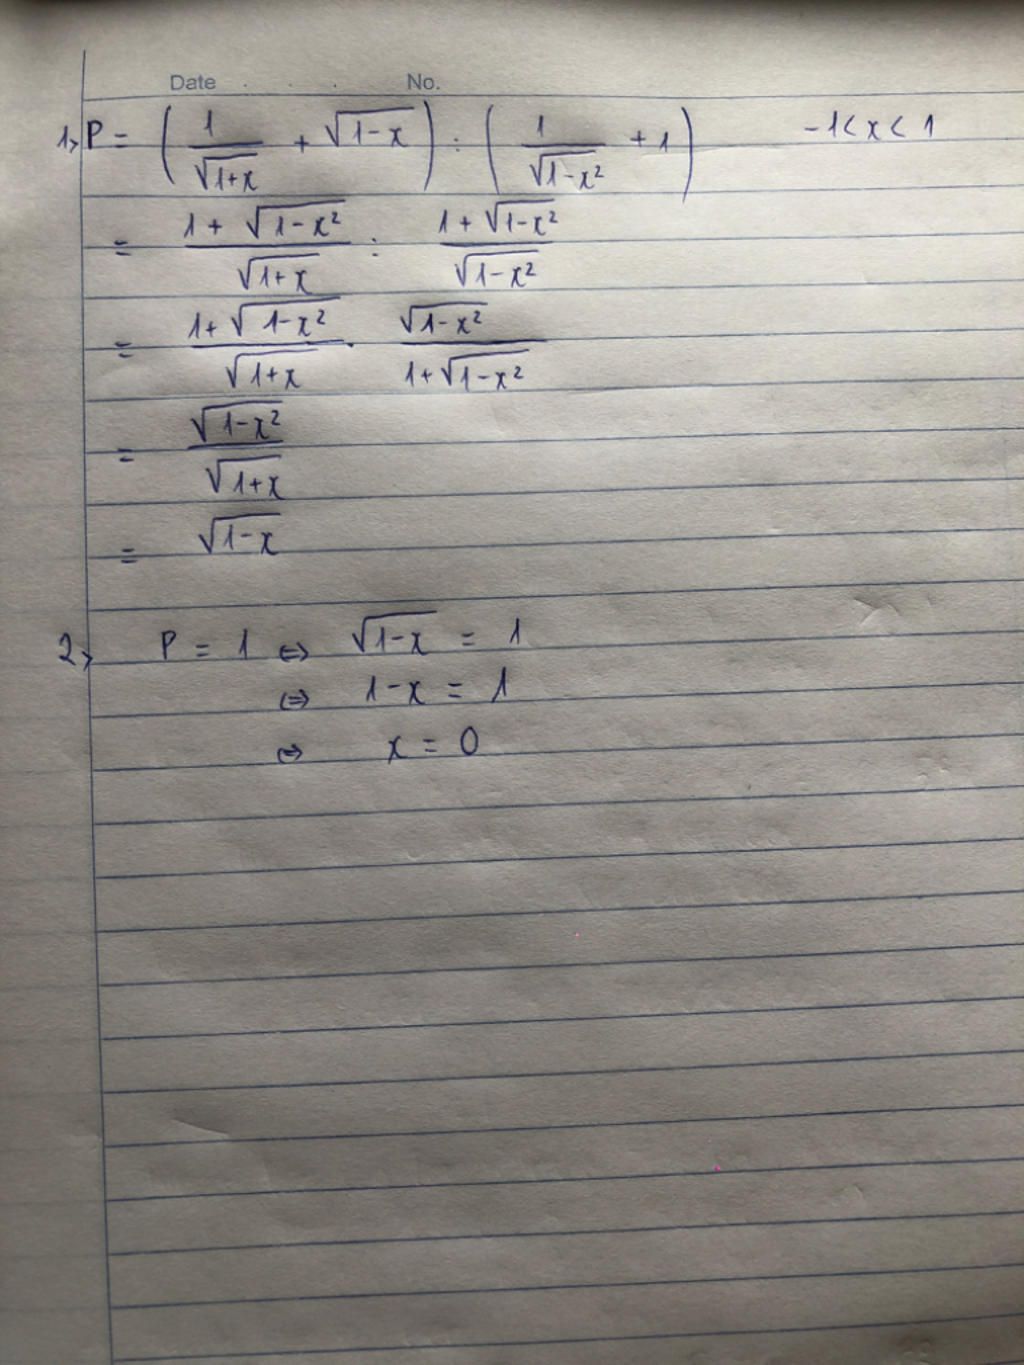 Date . . . . No.
1, P = ( 1/√(1+x) + √(1-x) ) : ( 1/√(1-x²) + 1 ) -1 < x < 1
= (1 + √(1-x²))/√(1+x) : (1 + √(1-x²))/√(1-x²)
= (1 + √(1-x²))/√(1+x) . √(1-x²)/(1 + √(1-x²))
= √(1-x²)/√(1+x)
= √(1-x)
2, P = 1 ⇔ √(1-x) = 1
⇔ 1-x = 1
⇔ x = 0